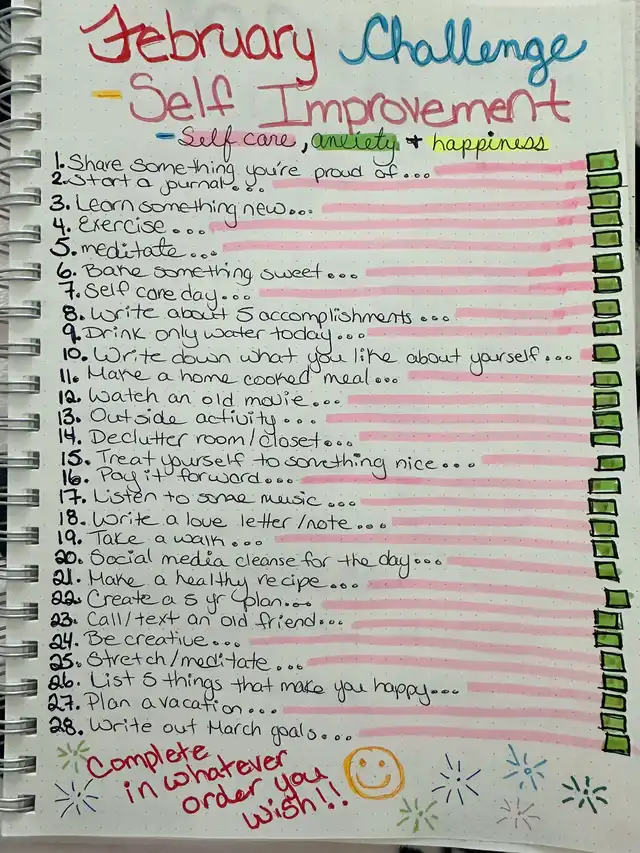 February Challenge
- Self Improvement
- Self care, anxiety + happiness
1. Share something you're proud of...
2. Start a journal...
3. Learn something new...
4. Exercise...
5. meditate...
6. Bake something sweet...
7. Self care day...
8. Write about 5 accomplishments...
9. Drink only water today...
10. Write down what you like about yourself...
11. Make a home cooked meal...
12. Watch an old movie...
13. Outside activity...
14. Declutter room/closet...
15. Treat yourself to something nice...
16. Pay it forward...
17. Listen to some music...
18. Write a love letter/note...
19. Take a walk...
20. Social media cleanse for the day...
21. Make a healthy recipe...
22. Create a 5 yr plan...
23. Call/text an old friend...
24. Be creative...
25. Stretch/meditate...
26. List 5 things that make you happy...
27. Plan a vacation...
28. Write out March goals...
Complete
in whatever
order you
wish!!